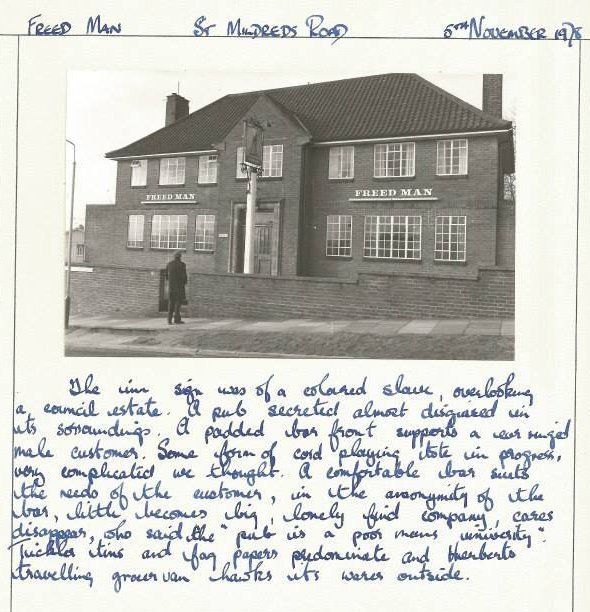 FREED MAN    ST MILDREDS ROAD    5TH NOVEMBER 1978
FREED MAN
FREED MAN
The inn sign was of a coloured slave, overlooking
a council estate. A pub secreted almost disguised in
its sorroundings. A padded bar front supports a
male customer. Some form of card playing in progress,
very complicated we thought. A comfortable bar suits
the needs of the customer, in the anonymity of the
bar, little becomes big, lonely find company, cares
disappear, who said the "pub is a poor mans university".
Tickler tins and fag papers predominate and Herberts
travelling grocer van hawks its wares outside.